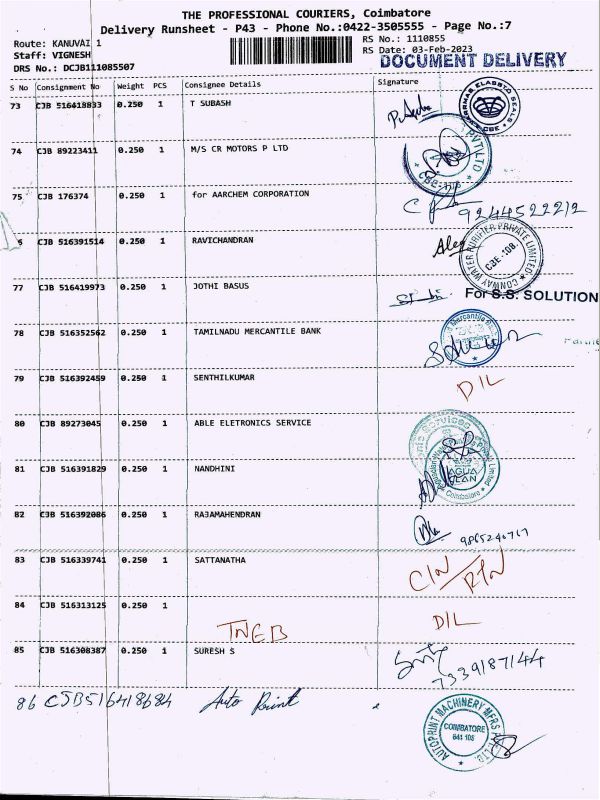 THE PROFESSIONAL COURIERS, Coimbatore
Delivery Runsheet - P43 - Phone No.:0422-3505555 - Page No.:7
Route: KANUVAI 1
RS No.: 1110855
Staff: VIGNESH
RS Date: 03-Feb-2023
DRS No.: DCJB111085507
DOCUMENT DELIVERY
S No Consignment No Weight PCS Consignee Details Signature
73 CJB 516418833 0.250 1 T SUBASH
74 CJB 89223411 0.250 1 M/S CR MOTORS P LTD
PVT LTD
75 CJB 176374 0.250 1 for AARCHEM CORPORATION
9244522212
6 CJB 516391514 0.250 1 RAVICHANDRAN
CONWAY WATER PURIFIER PRIVATE LIMITED
CBE-108.
77 CJB 516419973 0.250 1 JOTHI BASUS
For S.S. SOLUTION
78 CJB 516352562 0.250 1 TAMILNADU MERCANTILE BANK
79 CJB 516392459 0.250 1 SENTHILKUMAR D/L
80 CJB 89273045 0.250 1 ABLE ELETRONICS SERVICE
81 CJB 516391829 0.250 1 NANDHINI
Private Limited
Coimbatore
82 CJB 516392086 0.250 1 RAJAMAHENDRAN
83 CJB 516339741 0.250 1 SATTANATHA
C/N / RTN
84 CJB 516313125 0.250 1 TNEB D/L
85 CJB 516308387 0.250 1 SURESH S
7339187144
86 CJB516418684 Auto Print
AUTOPRINT MACHINERY MFRS PVT. LTD.
COIMBATORE
641 105